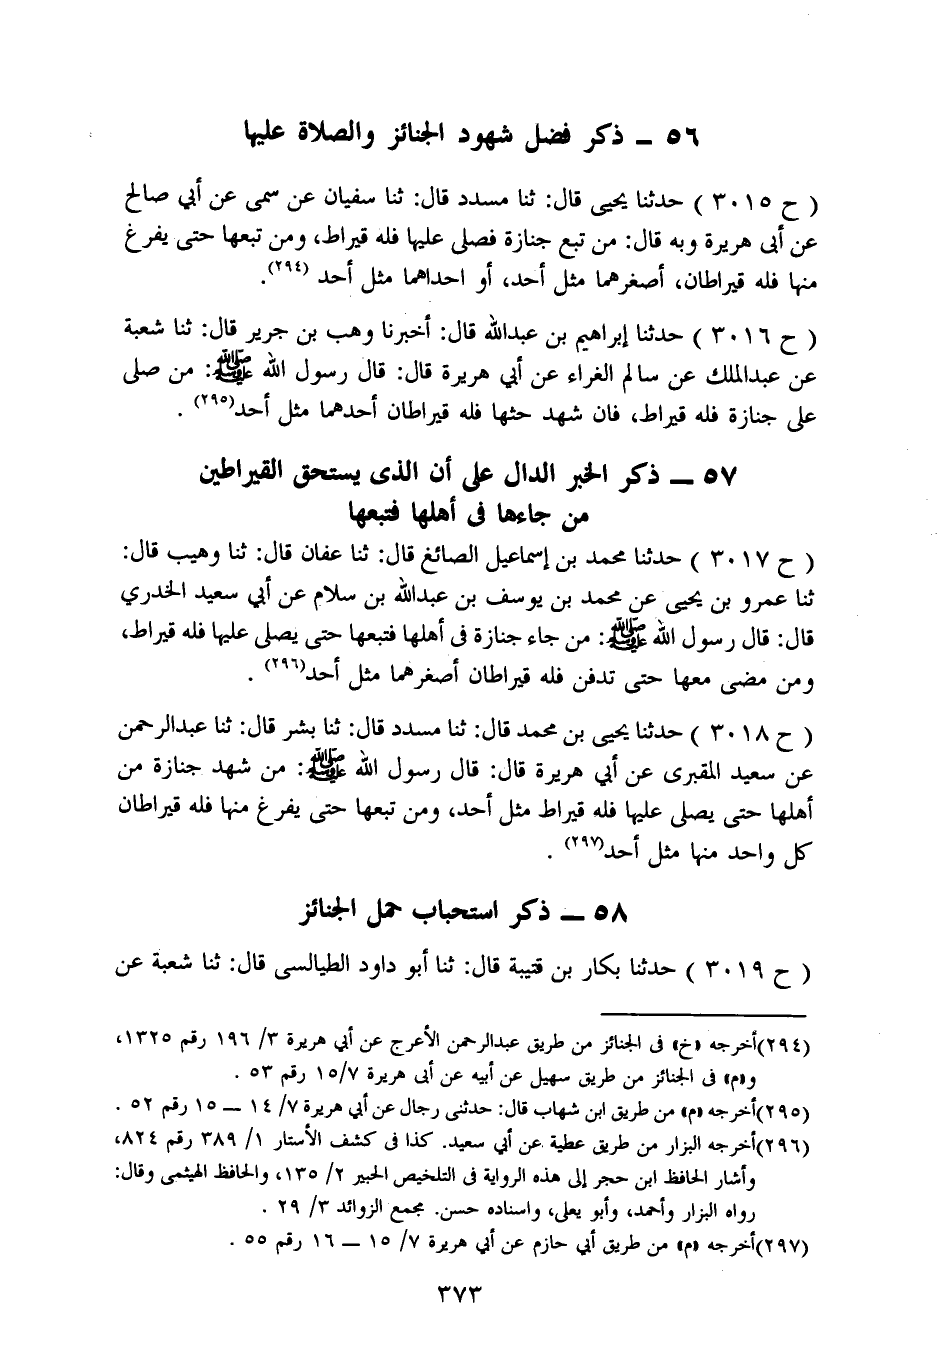 ٥٦ ــ ذكر فضل شهود الجنائز والصلاة عليها
( ح ٣٠١٥ ) حدثنا يحيى قال: ثنا مسدد قال: ثنا سفيان عن سمى عن أبي صالح
عن أبى هريرة وبه قال: من تبع جنازة فصلى عليها فله قيراط، ومن تبعها حتى يفرغ
منها فله قيراطان، أصغرهما مثل أحد، أو احداهما مثل أحد (٢٩٤).
( ح ٣٠١٦ ) حدثنا إبراهيم بن عبدالله قال: أخبرنا وهب بن جرير قال: ثنا شعبة
عن عبدالملك عن سالم الغراء عن أبي هريرة قال: قال رسول الله ﷺ: من صلى
على جنازة فله قيراط، فان شهد حثها فله قيراطان أحدهما مثل أحد(٢٩٥) .
٥٧ ــ ذكر الخبر الدال على أن الذى يستحق القيراطين
من جاءها فى أهلها فتبعها
( ح ٣٠١٧ ) حدثنا محمد بن إسماعيل الصائغ قال: ثنا عفان قال: ثنا وهيب قال:
ثنا عمرو بن يحيى عن محمد بن يوسف بن عبدالله بن سلام عن أبي سعيد الخدري
قال: قال رسول الله ﷺ: من جاء جنازة فى أهلها فتبعها حتى يصلى عليها فله قيراط،
ومن مضى معها حتى تدفن فله قيراطان أصغرهما مثل أحد(٢٩٦) .
( ح ٣٠١٨ ) حدثنا يحيى بن محمد قال: ثنا مسدد قال: ثنا بشر قال: ثنا عبدالرحمن
عن سعيد المقبرى عن أبي هريرة قال: قال رسول الله ﷺ: من شهد جنازة من
أهلها حتى يصلى عليها فله قيراط مثل أحد، ومن تبعها حتى يفرغ منها فله قيراطان
كل واحد منها مثل أحد(٢٩٧) .
٥٨ ــ ذكر استحباب حمل الجنائز
( ح ٣٠١٩ ) حدثنا بكار بن قتيبة قال: ثنا أبو داود الطيالسى قال: ثنا شعبة عن
(٢٩٤)أخرجه «خ» فى الجنائز من طريق عبدالرحمن الأعرج عن أبي هريرة ٣/ ١٩٦ رقم ١٣٢٥،
و«م» فى الجنائز من طريق سهيل عن أبيه عن أبى هريرة ١٥/٧ رقم ٥٣ .
(٢٩٥)أخرجه «م» من طريق ابن شهاب قال: حدثنى رجال عن أبي هريرة ٧/ ١٤ ــ ١٥ رقم ٥٢ .
(٢٩٦)أخرجه البزار من طريق عطية عن أبي سعيد. كذا فى كشف الأستار ١/ ٣٨٩ رقم ٨٢٤،
وأشار الحافظ ابن حجر إلى هذه الرواية فى التلخيص الحبير ٢/ ١٣٥، والحافظ الهيثمى وقال:
رواه البزار وأحمد، وأبو يعلى، واسناده حسن. مجمع الزوائد ٣/ ٢٩ .
(٢٩٧)أخرجه «م» من طريق أبي حازم عن أبي هريرة ٧/ ١٥ ــ ١٦ رقم ٥٥ .
٣٧٣